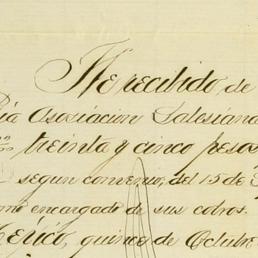 He recibido de
Pia Asociacion Salesiana
treinta y cinco pesos
segun convenio, del 15 de
mo encargado de sus cobros.
Mexico, quince de Octubre